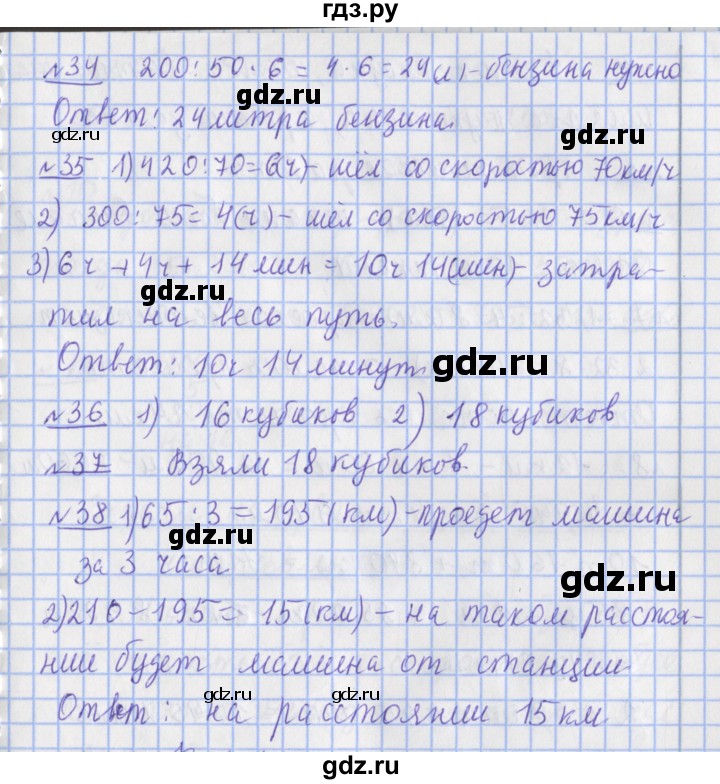 гдз.ру
№34 200:50·6=4·6=24(л)-бензина нужно
Ответ: 24 литра бензина.
gdz.ru
№35 1)420:70=6(ч)- шёл со скоростью 70км/ч
gdz.ru
2) 300:75=4(ч)- шёл со скоростью 75км/ч
3)6ч+4ч+14мин=10ч14(мин)- затра-
gdz.ru
тил на весь путь.
gdz.ru
Ответ: 10ч 14минут.
№36 1) 16 кубиков 2) 18 кубиков
№37 Взяли 18 кубиков.
№38 1)65·3=195(км)-проедет машина
gdz.ru
за 3 часа
gdz.ru
2)210-195=15(км)- на таком расстоя-
нии будет машина от станции
gdz.ru gdz.ru
Ответ: на расстоянии 15км
gdz.ru